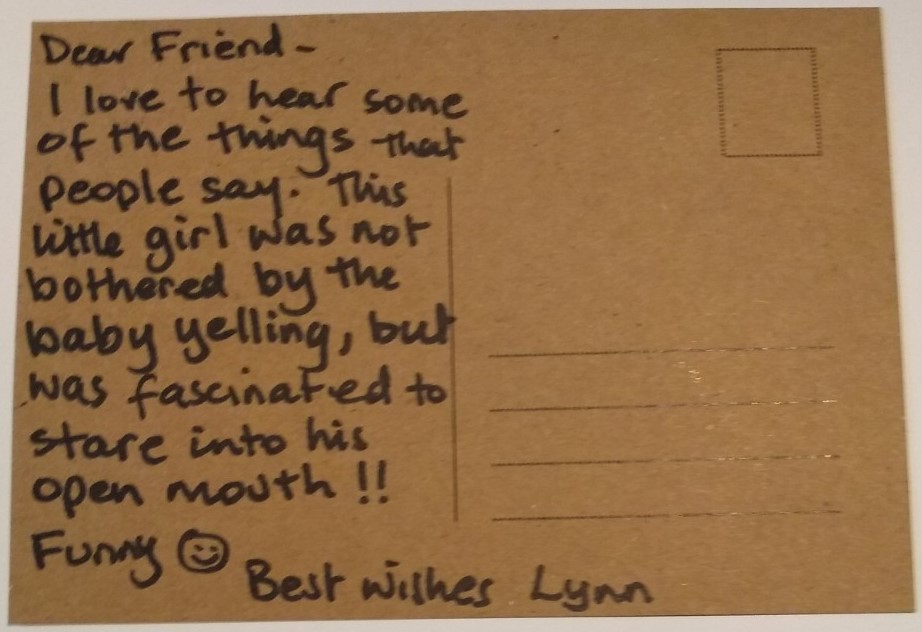 Dear Friend -
I love to hear some
of the things that
people say. This
little girl was not
bothered by the
baby yelling, but
was fascinated to
stare into his
open mouth !!
Funny ☺
Best wishes Lynn